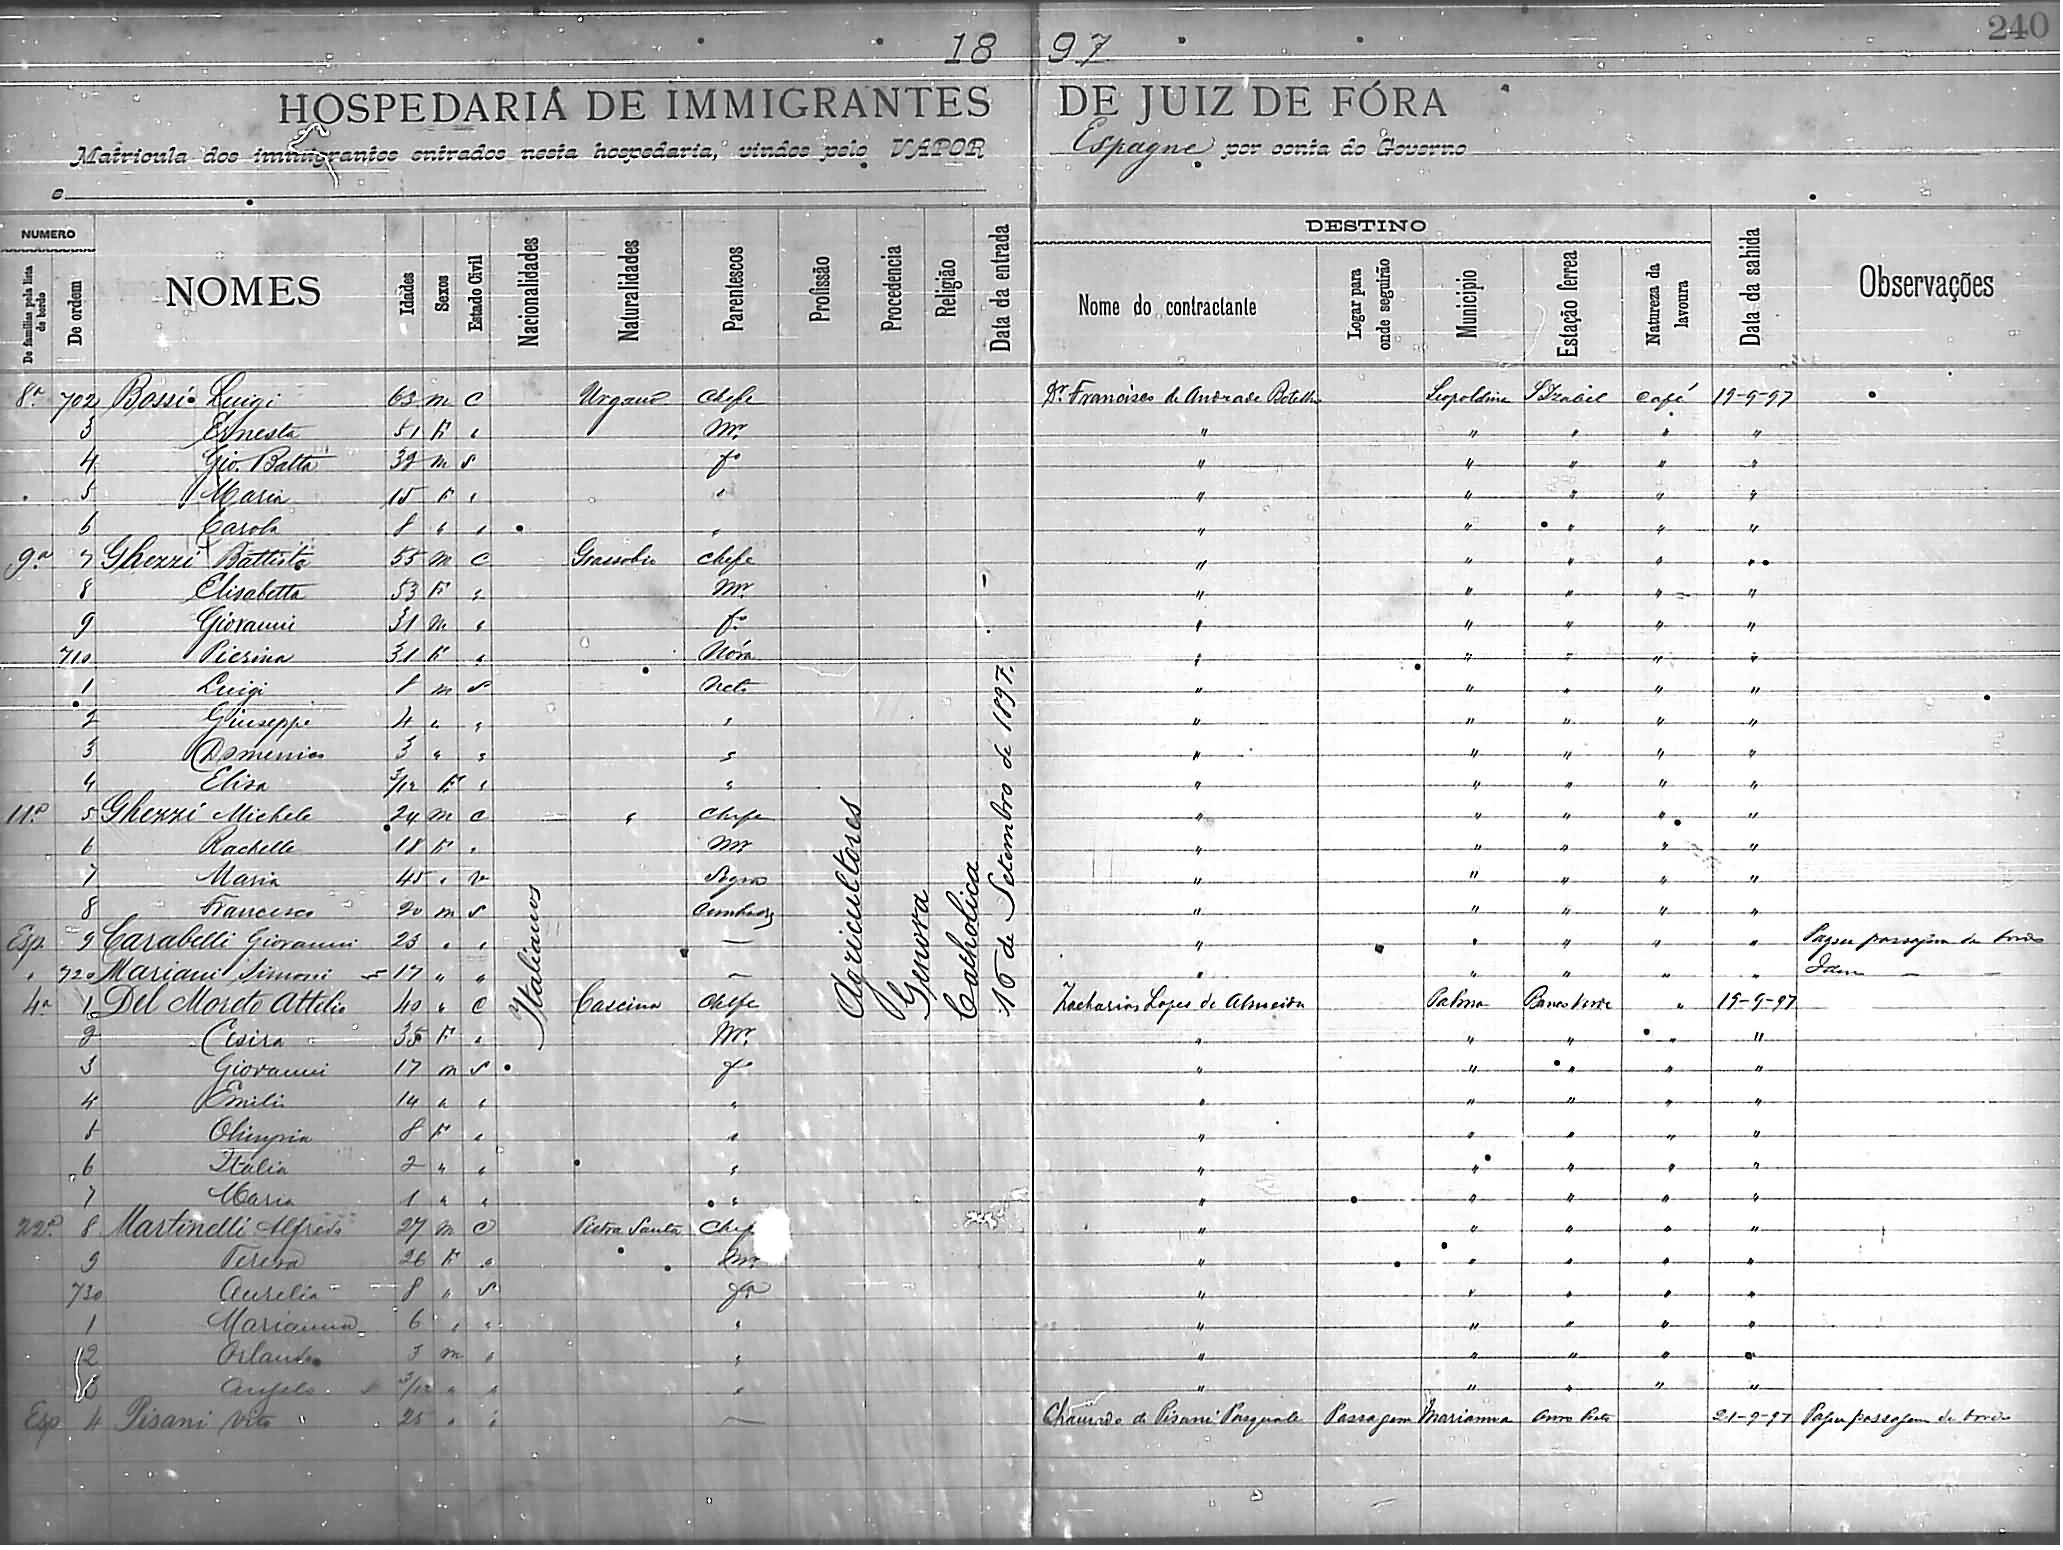 240
18 97
HOSPEDARIA DE IMMIGRANTES DE JUIZ DE FÓRA
Matricula dos immigrantes entrados nesta hospedaria, vindos pelo VAPOR Espagne por conta do Governo
e
NUMERO
De familias pela lista de bordo
De ordem
NOMES
Idades
Sexos
Estado Civil
Nacionalidades
Naturalidades
Parentescos
Profissão
Procedencia
Religião
Data da entrada
DESTINO
Nome do contractante
Logar para onde seguirão
Municipio
Estação ferrea
Natureza da lavoura
Data da sahida
Observações
8ª 702 Bossi Luigi 63 m C Urgano Chefe Dr. Francisco de Andrade Botelho Leopoldina S Izabel Café 19-9-97
3 Ernesta 51 F " Mr. " " " " "
4 Gio. Batta 32 m S fº " " " " "
5 Maria 15 F " " " " " " "
6 Carola 8 " " " " " " " "
9ª 7 Ghezzi Battista 55 m C Grassobio Chefe " " " " "
8 Elisabetta 53 F " Mr. " " " " "
9 Giovanni 31 m " fº " " " " "
710 Pierina 31 F " Nóra " " " " "
1 Luigi 8 m S Neto " " " " "
2 Giuseppe 4 " " " " " " " "
3 Domenico 3 " " " " " " " "
4 Elisa 3/12 F " " " " " " "
11ª 5 Ghezzi Michele 24 m C " Chefe " " " " "
6 Rachelle 18 F " Mr " " " " "
7 Maria 45 " v Sogra " " " " "
8 Francesco 20 m S Cunhado " " " " "
Esp. 9 Carabelli Giovanni 23 " " — " " " " " Pagou passagem de bordo
" 720 Mariani Simoni 17 " " — " " " " " Idem — —
4ª 1 Del Moreto Attilio 40 " C Cascina Chefe Zacharias Lopes de Almeida Palma Banco Verde " 19-9-97
2 Cesira 35 F " Mr. " " " " "
3 Giovanni 17 m S fº " " " " "
4 Emilio 14 " " " " " " " "
5 Olimpia 8 F " " " " " " "
6 Italia 2 " " " " " " " "
7 Maria 1 " " " " " " " "
22ª 8 Martinelli Alfredo 27 m C Pietra Santa Chefe " " " " "
9 Teresa 26 F " Mr. " " " " "
730 Aurelia 8 " S fª " " " " "
1 Marianna 6 " " " " " " " "
2 Orlando 3 m " " " " " " "
3 Angelo 3/12 " " " " " " " "
Esp 4 Pisani Vito 25 " " — Chamado de Pisani Pasquale Passagem Marianna Ouro Preto 21-9-97 Pagou passagem de bordo
Italianos
Agricultores
Genova
Catholica
16 de Setembro de 1897.